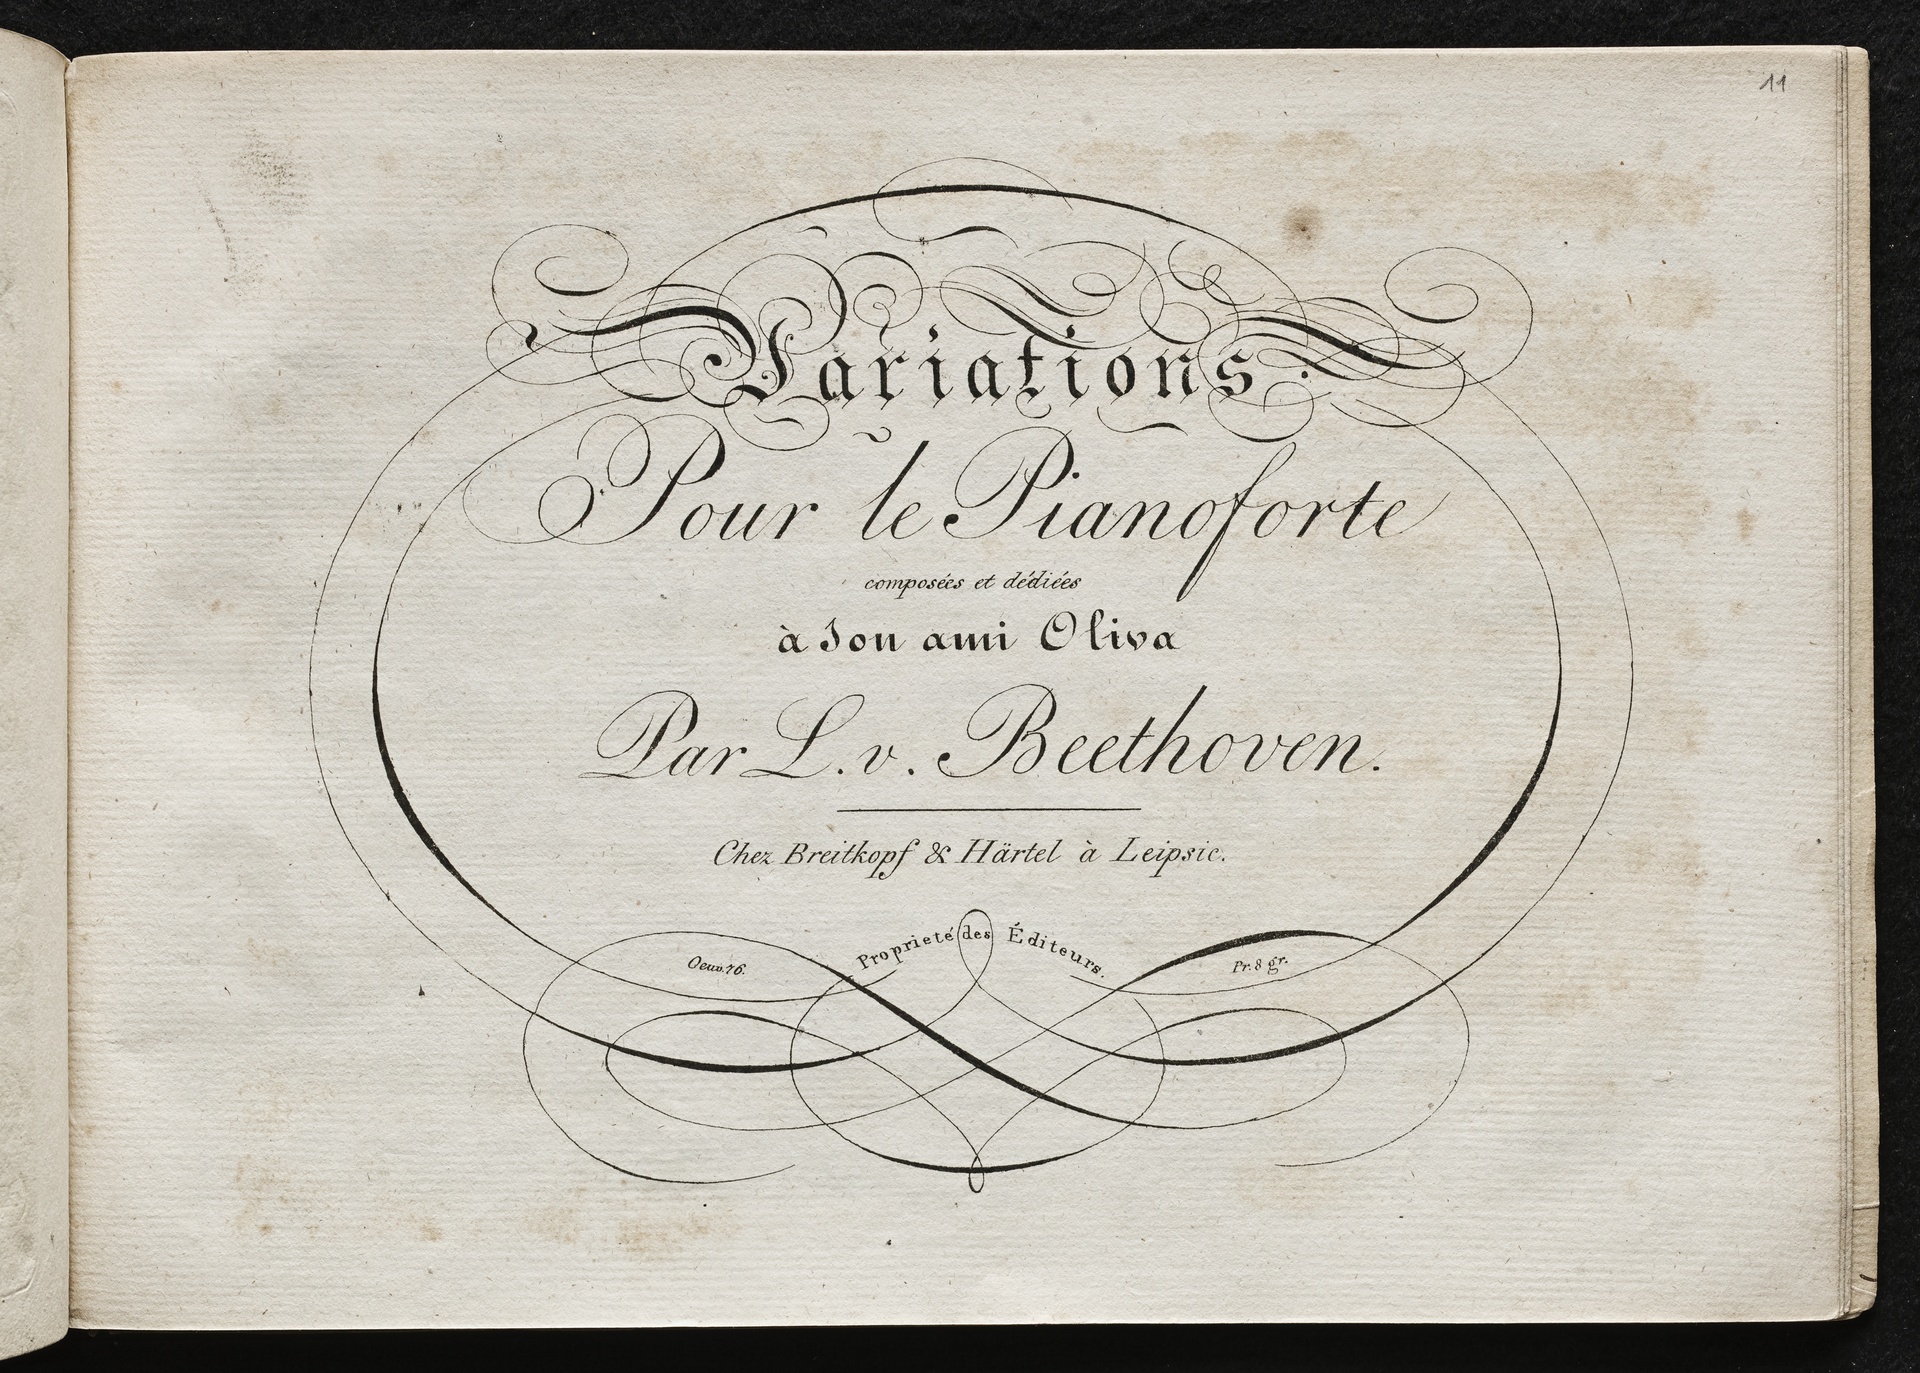 11
Variations
Pour le Pianoforte
composées et dédiées
à Son ami Oliva
Par L. v. Beethoven.
Chez Breitkopf & Härtel à Leipsic.
Proprieté des Éditeurs.
Oeuv. 76.
Pr. 8 gr.